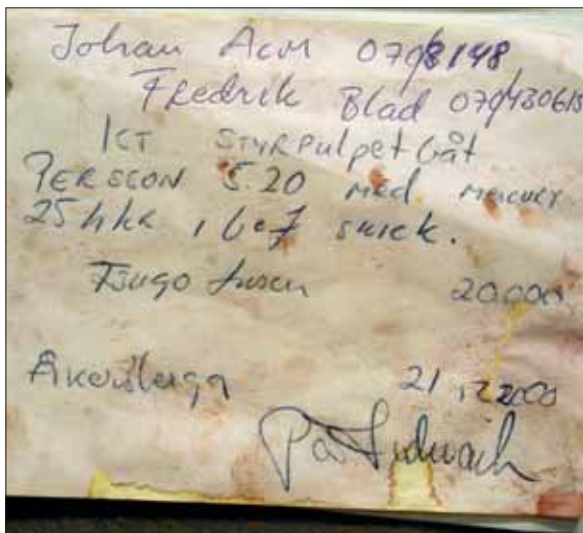 Johan Acm 070/8148
Fredrik Blad 070/430615
1 ST STYRPulpet båt
PERSSON 5.20 med mercury
25 hkr i bef skick.
Tjugo tusen 20.000
Åkersberga 21 12 2000